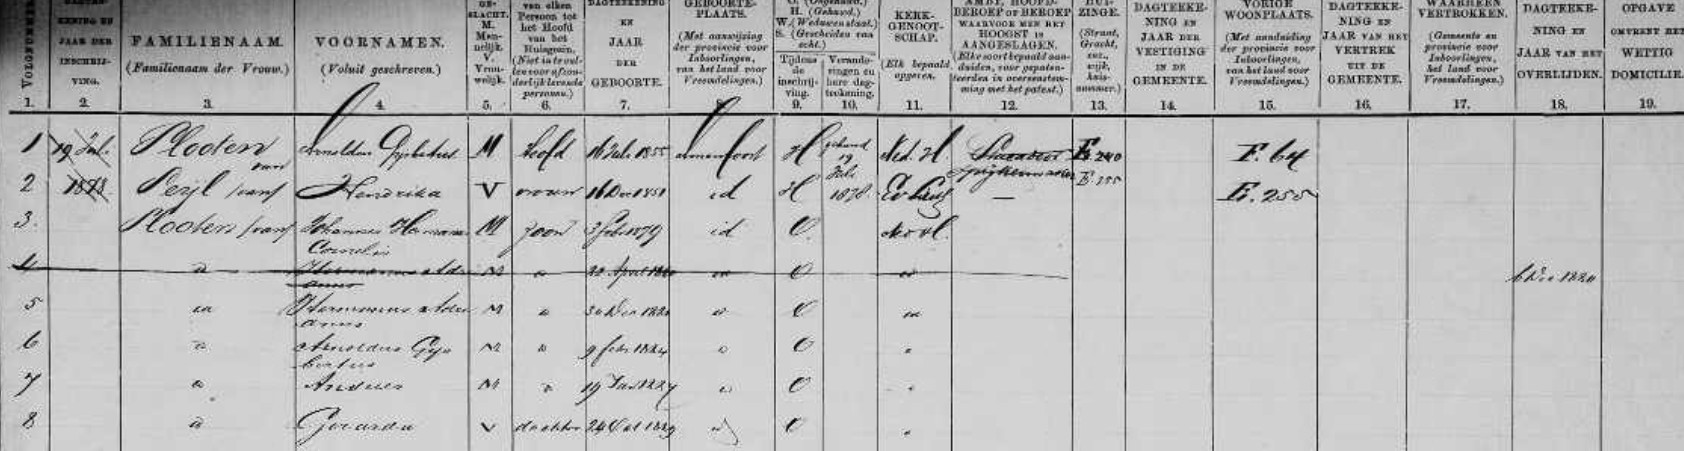 VOLGNUMMER.
DAGTEEKENING EN JAAR DER INSCHRIJVING.
FAMILIENAAM. (Familienaam der Vrouw.)
VOORNAMEN. (Voluit geschreven.)
GESLACHT. M. Mannelijk. V. Vrouwelijk.
van elken Persoon tot het Hoofd van het Huisgezin. (Niet in te vullen voor afzonderlijk levende personen.)
DAGTEEKENING EN JAAR DER GEBOORTE.
GEBOORTEPLAATS. (Met aanwijzing der provincie voor Inboorlingen, van het land voor Vreemdelingen.)
O. (Ongehuwd.) H. (Gehuwd.) W. (Weduwenstaat.) S. (Gescheiden van echt.)
Tijdens de inschrijving.
Veranderingen en hare dagteekening.
KERKGENOOTSCHAP. (Elk bepaald opgeven.)
AMBT, HOOFDBEROEP of BEROEP WAARVOOR MEN HET HOOGST IS AANGESLAGEN. (Elke soort bepaald aanduiden, voor gepatenteerden in overeenstemming met het patent.)
HUIZINGE. (Straat, Gracht, enz., wijk, huisnummer.)
DAGTEEKENING EN JAAR DER VESTIGING IN DE GEMEENTE.
VORIGE WOONPLAATS. (Met aanduiding der provincie voor Inboorlingen, van het land voor Vreemdelingen.)
DAGTEEKENING EN JAAR VAN HET VERTREK UIT DE GEMEENTE.
WAARHEEN VERTROKKEN. (Gemeente en provincie voor Inboorlingen, het land voor Vreemdelingen.)
DAGTEEKENING EN JAAR VAN HET OVERLIJDEN.
OPGAVE OMTRENT HET WETTIG DOMICILIE.
1. 2. 3. 4. 5. 6. 7. 8. 9. 10. 11. 12. 13. 14. 15. 16. 17. 18. 19.
1 19 Juli Sloten van Arnoldus Gijsbertus M hoofd 16 Juli 1855 Amersfoort H gehuwd 19 Juli 1878 Ned. H. E 240 F. 64
2 1878 Perijl (van) Hendrika V vrouw 16 Dec 1851 id H Ev Luth — E 255 E. 255
3. Sloten (van) Johannes Hermanus Cornelis M zoon 3 Febr 1879 id O. Ned H.
4 " Hermanus Adrianus M " 22 April 1880 " O " 6 Dec 1880
5 " Hermanus Adrianus M " O "
6 " Arnoldus Gijsbertus M " 9 febr 1884 " O "
7 " Andries M " 19 Jan 1887 " O "
8 " Gerarda V dochter 24 Oct 1889 " O "